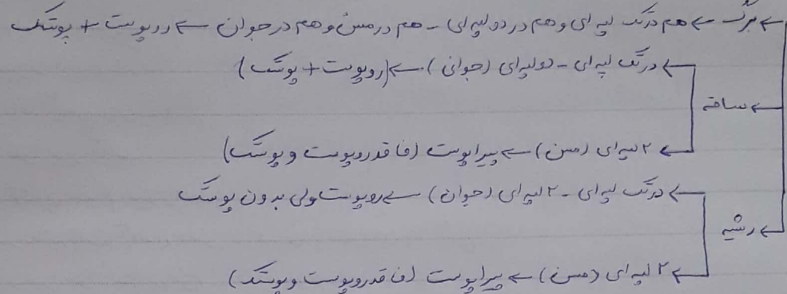 ← برگ ← هم در تک لپه ای و هم در دو لپه ای - هم در مسن و هم در جوان ← روپوست + پوستک
← ساقه
← در تک لپه ای - دولپه ای (جوان) ← (روپوست + پوستک)
← ۲ لپه ای (مسن) ← پیراپوست (فاقد روپوست و پوستک)
← ریشه
← در تک لپه ای - ۲ لپه ای (جوان) ← روپوست ولی بدون پوستک
← ۲ لپه ای (مسن) ← پیراپوست (فاقد روپوست و پوستک)